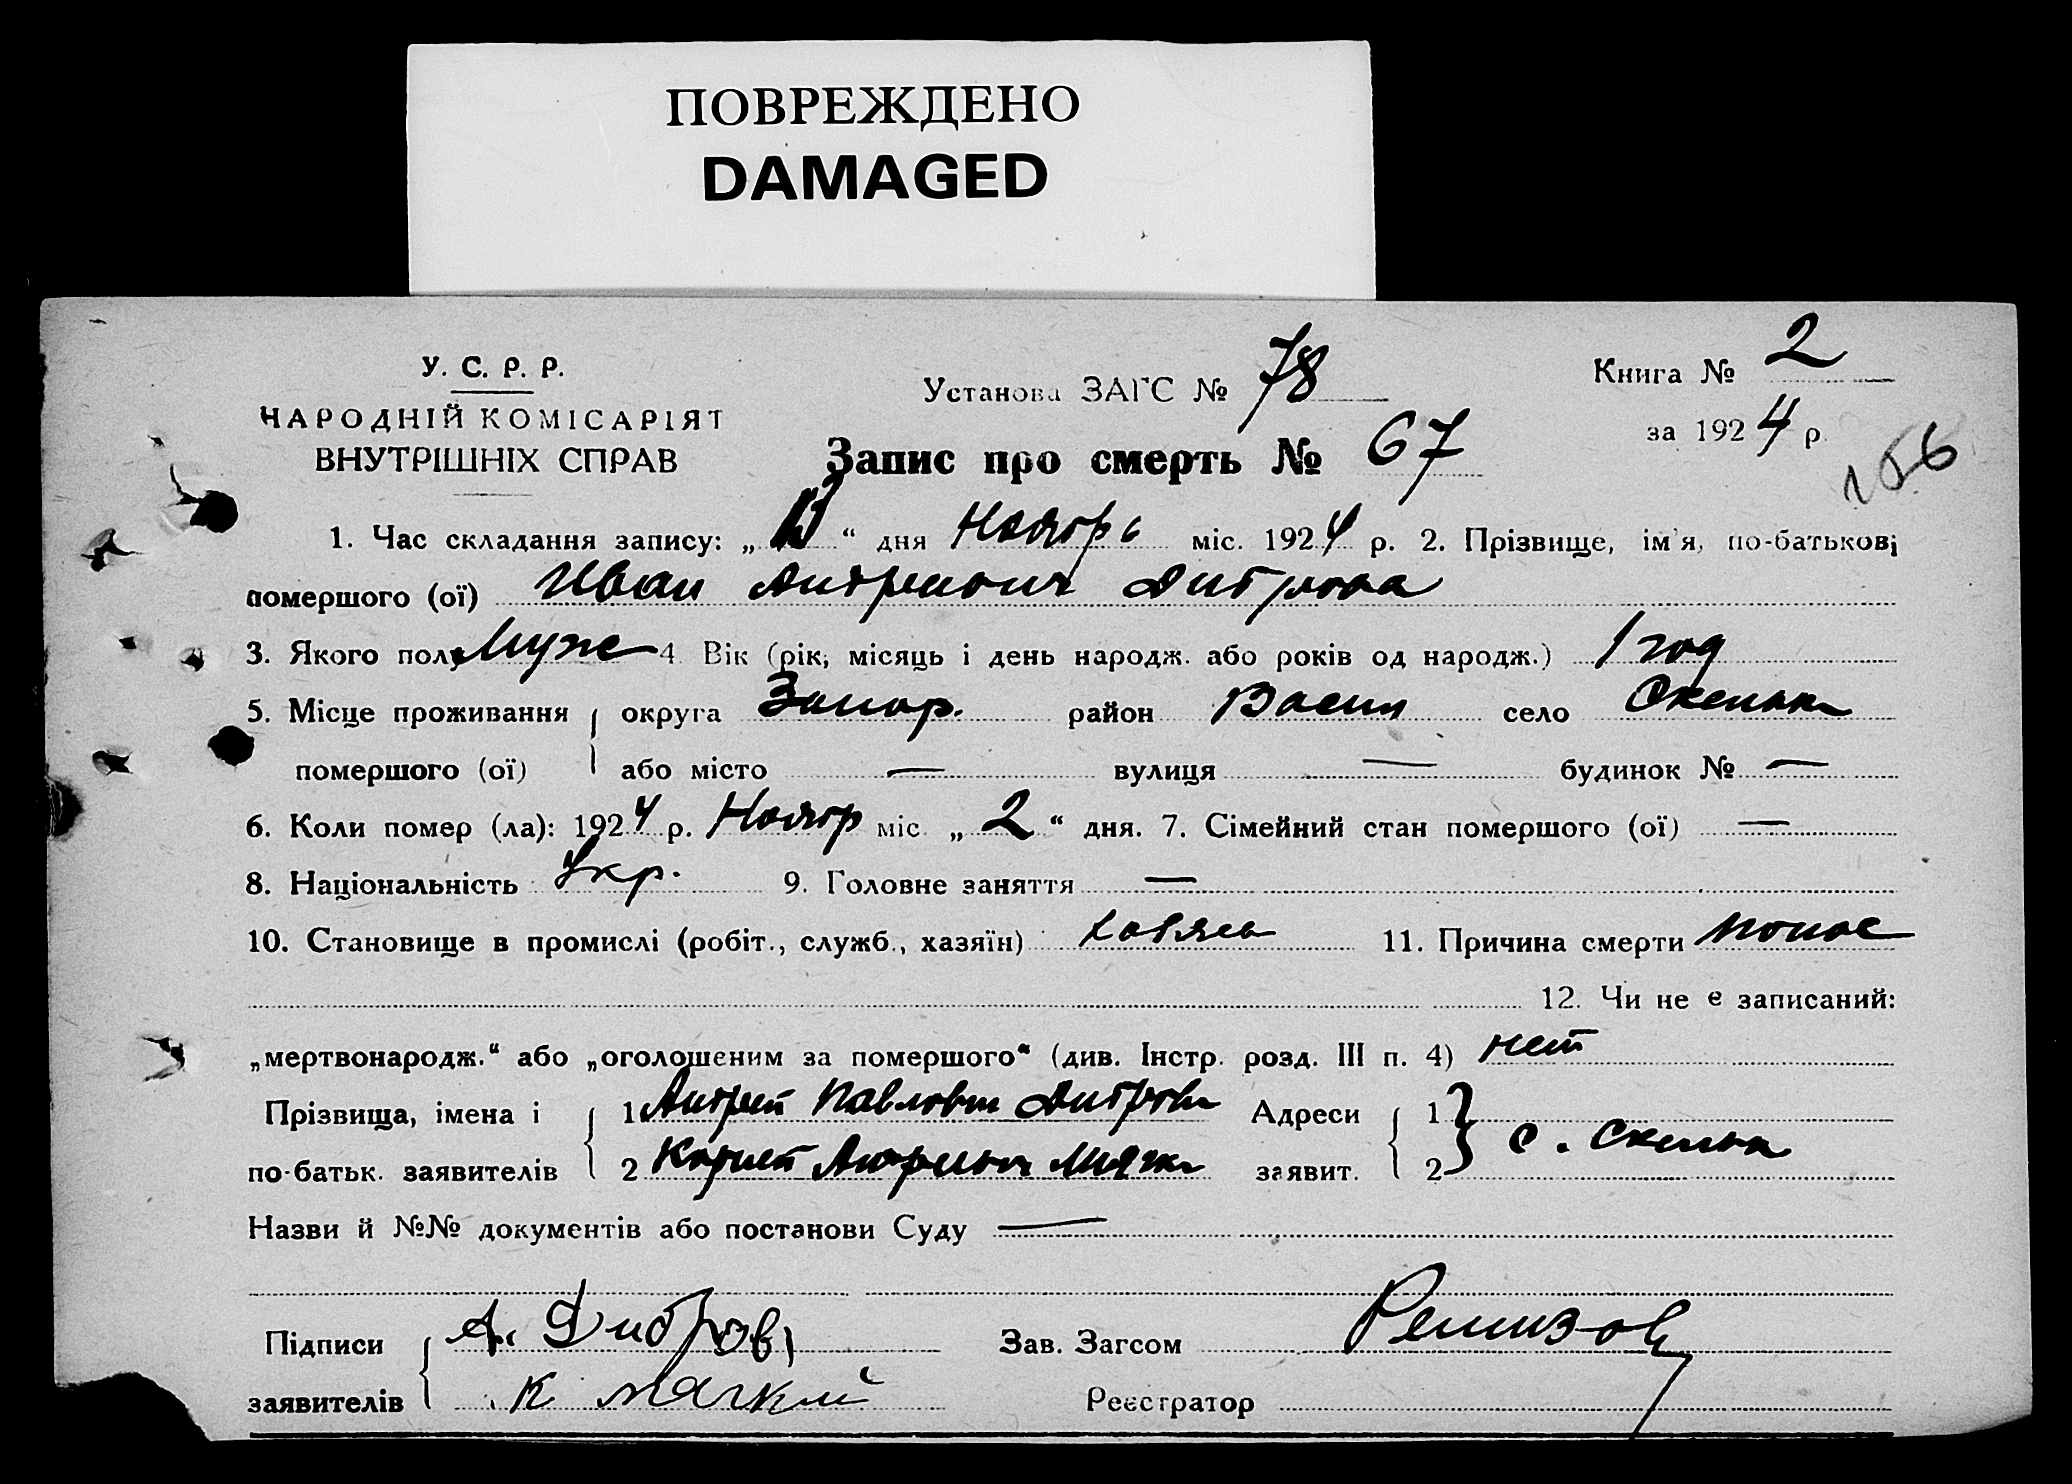 ПОВРЕЖДЕНО
DAMAGED
У. С. Р. Р.
НАРОДНІЙ КОМІСАРІЯТ
ВНУТРІШНІХ СПРАВ
Установа ЗАГС № 78
Книга № 2
за 1924 р.
Запис про смерть № 67
156
1. Час складання запису: „ “ дня Ноябрь міс. 1924 р. 2. Прізвище, ім'я, по-батькові
помершого (ої) Иван Андреевич Диброва
3. Якого полу Муж 4 Вік (рік, місяць і день народж. або років од народж.) 1 год
5. Місце проживання округа Запор. район Васил село Скельки
помершого (ої) або місто — вулиця — будинок № —
6. Коли помер (ла): 1924 р. Ноябр міс. „2“ дня. 7. Сімейний стан помершого (ої) —
8. Національність Укр. 9. Головне заняття —
10. Становище в промислі (робіт., служб., хазяїн) 11. Причина смерти понос
12. Чи не є записаний:
„мертвонародж.“ або „оголошеним за помершого“ (див. Інстр. розд. III п. 4) нет
Прізвища, імена і 1 Андрей Павлович Диброва Адреси 1
по-батьк. заявителів 2 Корней Андреевич Мягкий заявит. 2 с. Скельки
Назви й №№ документів або постанови Суду —
Підписи А. Диброва Зав. Загсом Ремизов
заявителів К Мягкий Реєстратор